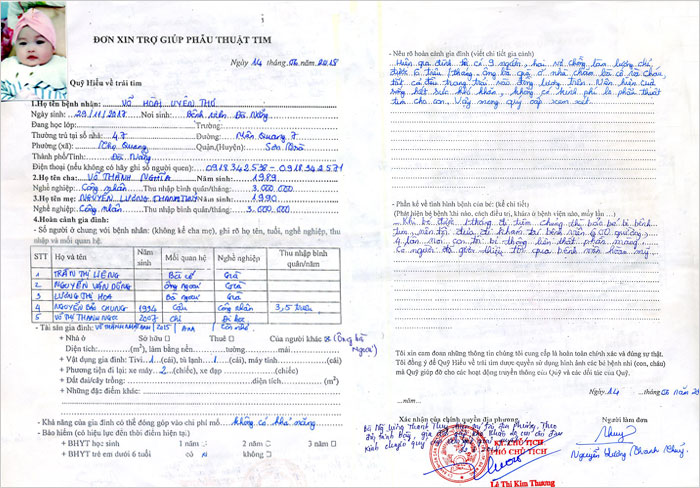 ĐƠN XIN TRỢ GIÚP PHẪU THUẬT TIM
Ngày 14 tháng 06 năm 2018
Quỹ Hiểu về trái tim
1.Họ tên bệnh nhân: VÕ HOÀI UYÊN THƯ
Ngày sinh: 28/11/2017 Nơi sinh: Bệnh viện Đà Nẵng
Đang học lớp: Trường:
Thường trú tại số nhà: 47 Đường: Mân Quang 7
Phường (xã): Thọ Quang Quận,(Huyện): Sơn Trà
Thành phố/Tỉnh: Đà Nẵng
Điện thoại (nếu không có hãy ghi số người quen): 0918342538 - 0918342571
2.Họ tên cha: VÕ THÀNH NGHĨA Năm sinh: 1989
Nghề nghiệp: Công nhân Thu nhập bình quân/tháng: 3.000.000
3.Họ tên mẹ: NGUYỄN LƯƠNG THANH THUÝ Năm sinh: 1990
Nghề nghiệp: Công nhân Thu nhập bình quân/tháng: 3.000.000
4.Hoàn cảnh gia đình:
- Số người ở chung với bệnh nhân: (không kể cha mẹ), ghi rõ họ tên, tuổi, nghề nghiệp, thu
nhập và mối quan hệ
STT Họ và tên Năm sinh Mối quan hệ Nghề nghiệp Thu nhập bình quân/năm
1 TRẦN THỊ LIÊNG Bà cố Già
2 NGUYỄN VĂN DŨNG Ông ngoại Già
3 LƯƠNG THỊ HOA Bà ngoại Già
4 NGUYỄN BẢO CHUNG 1994 Cậu Công nhân 3,5 triệu
5 VÕ THỊ THANH NGỌC 2007 Chị Đi học
- Tài sản gia đình: VÕ THÀNH NHẬT ANH / 2015 / Anh Còn nhỏ
+ Nhà ở Sở hữu □ Thuê □ Của người khác (Ông bà
Ngoại)
Diện tích: (m²), làm bằng nền tường: mái:
+ Vật dụng gia đình: Tivi 1 (cái), tủ lạnh 1 (cái), máy tính (cái)
+ Phương tiện đi lại: xe máy 2 (chiếc), xe đạp (chiếc)
+ Đất đai/cây trồng: diện tích (m²)
+ Những đặc điểm khác:
- Khả năng của gia đình có thể đóng góp vào chi phí mổ: không có khả năng
- Bảo hiểm (có hiệu lực đến thời điểm hiện tại)
+ BHYT học sinh: 1 năm □ 2 năm □ 3 năm □
+ BHYT trẻ em dưới 6 tuổi có không □
- Nêu rõ hoàn cảnh gia đình (viết chi tiết gia cảnh)
Hiện gia đình tôi có 9 người, hai vợ chồng làm lương chỉ
được 6 triệu/tháng. Ông bà già ở nhà chăm bà cố và cháu,
tất cả đều trang trải vào đồng lương trên. Nên hiện cuộc
sống hết sức khó khăn, không có kinh phí lo phẫu thuật
tim cho con. Vậy mong quý cấp xem xét.
- Phần kể về tình hình bệnh của bé: (kể chi tiết)
(Phát hiện bé bệnh khi nào, cách điều trị, khám ở bệnh viện nào, mấy lần ...)
Khi bé được tháng đi tiêm chủng thì báo bé bị bệnh
tim, nên tôi đưa đi khám tại bệnh viện 600 giường,
4 lần mới con tôi bị thông liên thất phần màng.
Có người đã giới thiệu tôi qua bệnh viện hoàn mỹ.
Tôi xin cam đoan những thông tin chúng tôi cung cấp là hoàn toàn chính xác và đúng sự thật.
Tôi đồng ý để Quỹ Hiểu về trái tim được quyền sử dụng hình ảnh các bé bệnh nhi (con, cháu)
mà Quỹ giúp đỡ cho các hoạt động truyền thông của Quỹ và các đối tác của Quỹ.
Ngày 14 06 năm 20
Xác nhận của chính quyền địa phương
Người làm đơn
KT. CHỦ TỊCH
PHÓ CHỦ TỊCH
Thuý
Nguyễn Lương Thanh Thuý
Lê Thị Kim Thương